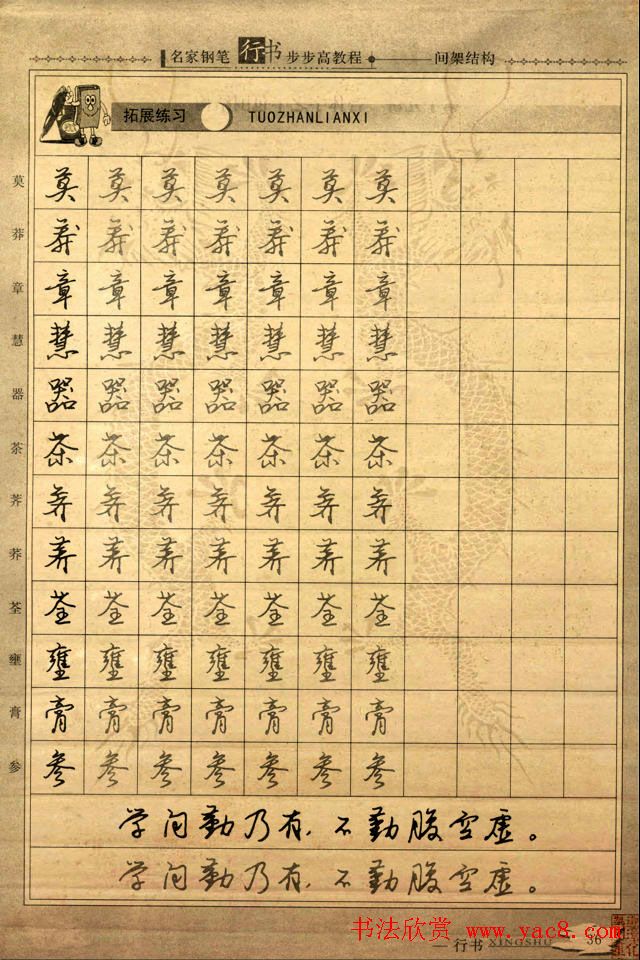 名家钢笔 行书 步步高教程 间架结构
拓展练习 TUOZHANLIANXI
莫 莫 莫 莫 莫 莫 莫 莫
莽 莽 莽 莽 莽 莽 莽 莽
章 章 章 章 章 章 章 章
慧 慧 慧 慧 慧 慧 慧 慧
器 器 器 器 器 器 器 器
茶 茶 茶 茶 茶 茶 茶 茶
荠 荠 荠 荠 荠 荠 荠 荠
荞 荞 荞 荞 荞 荞 荞 荞
荃 荃 荃 荃 荃 荃 荃 荃
壅 壅 壅 壅 壅 壅 壅 壅
膏 膏 膏 膏 膏 膏 膏 膏
参 参 参 参 参 参 参 参
学问勤乃有,不勤腹空虚。
学问勤乃有,不勤腹空虚。
书法欣赏 www.yac8.com
行书 XINGSHU 36